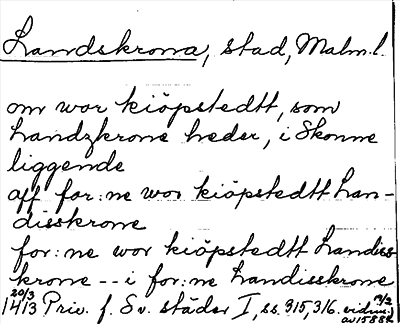 Landskrona, stad, Malm.l.
om wor kiöpstedtt, som
Landzkrone heder, i Skonne
liggende
aff for:ne wor kiöpstedtt Lan-
disskrone
for:ne wor kiöpstedtt Landiss
krone -- i for:ne Landisskrone
20/3 1413 Priv. f. Sv. städer I, ss. 315, 316. vidim.
av 1588